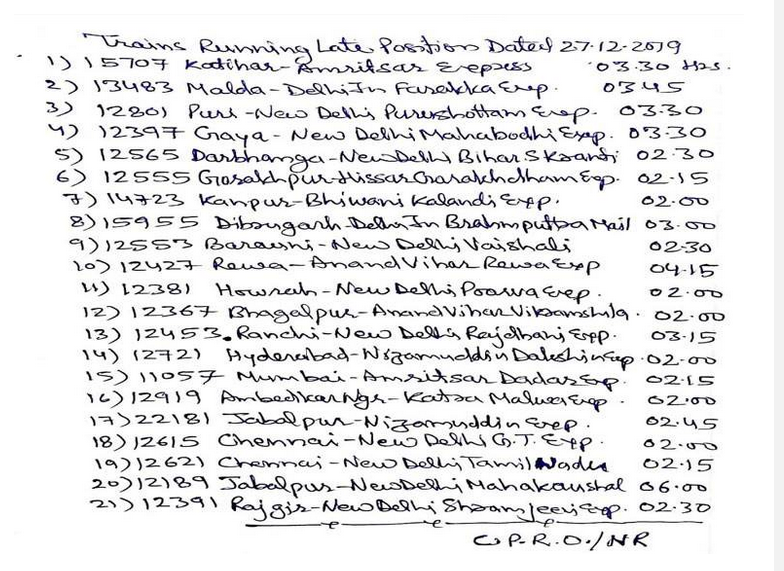 Trains Running Late Position Dated 27-12-2019
1) 15707 Katihar-Amritsar Express 03.30 Hrs.
2) 13483 Malda-Delhi Jn Farakka Exp. 03.45
3) 12801 Puri-New Delhi Purushottam Exp. 03.30
4) 12397 Gaya-New Delhi Mahabodhi Exp. 03.30
5) 12565 Darbhanga-New Delhi Bihar S Kranti 02.30
6) 12555 Gorakhpur-Hissar Gorakhdham Exp. 02.15
7) 14723 Kanpur-Bhiwani Kalandi Exp. 02.00
8) 15955 Dibrugarh-Delhi Jn Brahmputra Mail 03.00
9) 12553 Barauni-New Delhi Vaishali 02.30
10) 12427 Rewa-Anand Vihar Rewa Exp 04.15
11) 12381 Howrah-New Delhi Poorva Exp. 02.00
12) 12367 Bhagalpur-Anand Vihar Vikramshila. 02.00
13) 12453. Ranchi-New Delhi Rajdhani Exp. 03.15
14) 12721 Hyderabad-Nizamuddin Dakshin Exp. 02.00
15) 11057 Mumbai-Amritsar Dadar Exp. 02.15
16) 12919 Ambedkar Ngr-Katra Malwa Exp. 02.00
17) 22181 Jabalpur-Nizamuddin Exp. 02.45
18) 12615 Chennai-New Delhi G.T. Exp. 02.00
19) 12621 Chennai-New Delhi Tamil Nadu 02.15
20) 12189 Jabalpur-New Delhi Mahakaushal 06.00
21) 12391 Rajgir-New Delhi Shramjeevi Exp. 02.30
C.P.R.O./NR